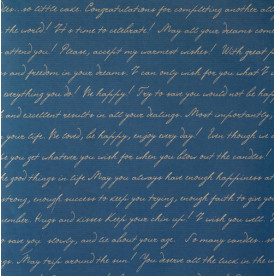 so little cake. Congratulations for completing another
the world! It's a time to celebrate! May all your dreams come
attend you! Please, accept my warmest wishes! With great
and freedom in your dreams. I can only wish for you what I
everything you do! Be happy! Try to save you would not be
and excellent results in all your dealings. Most importantly
your life. Be loved, be happy, enjoy every day! Even though
you get whatever you wish for when you blow out the candles.
good things in life May you always have enough happiness
enough success to keep you trying, enough faith to give
Hugs and kisses Keep your chin up! I wish you well.
you, slowly, and lie about your age. So many candles
May trip around the sun! You deserve all the luck in the